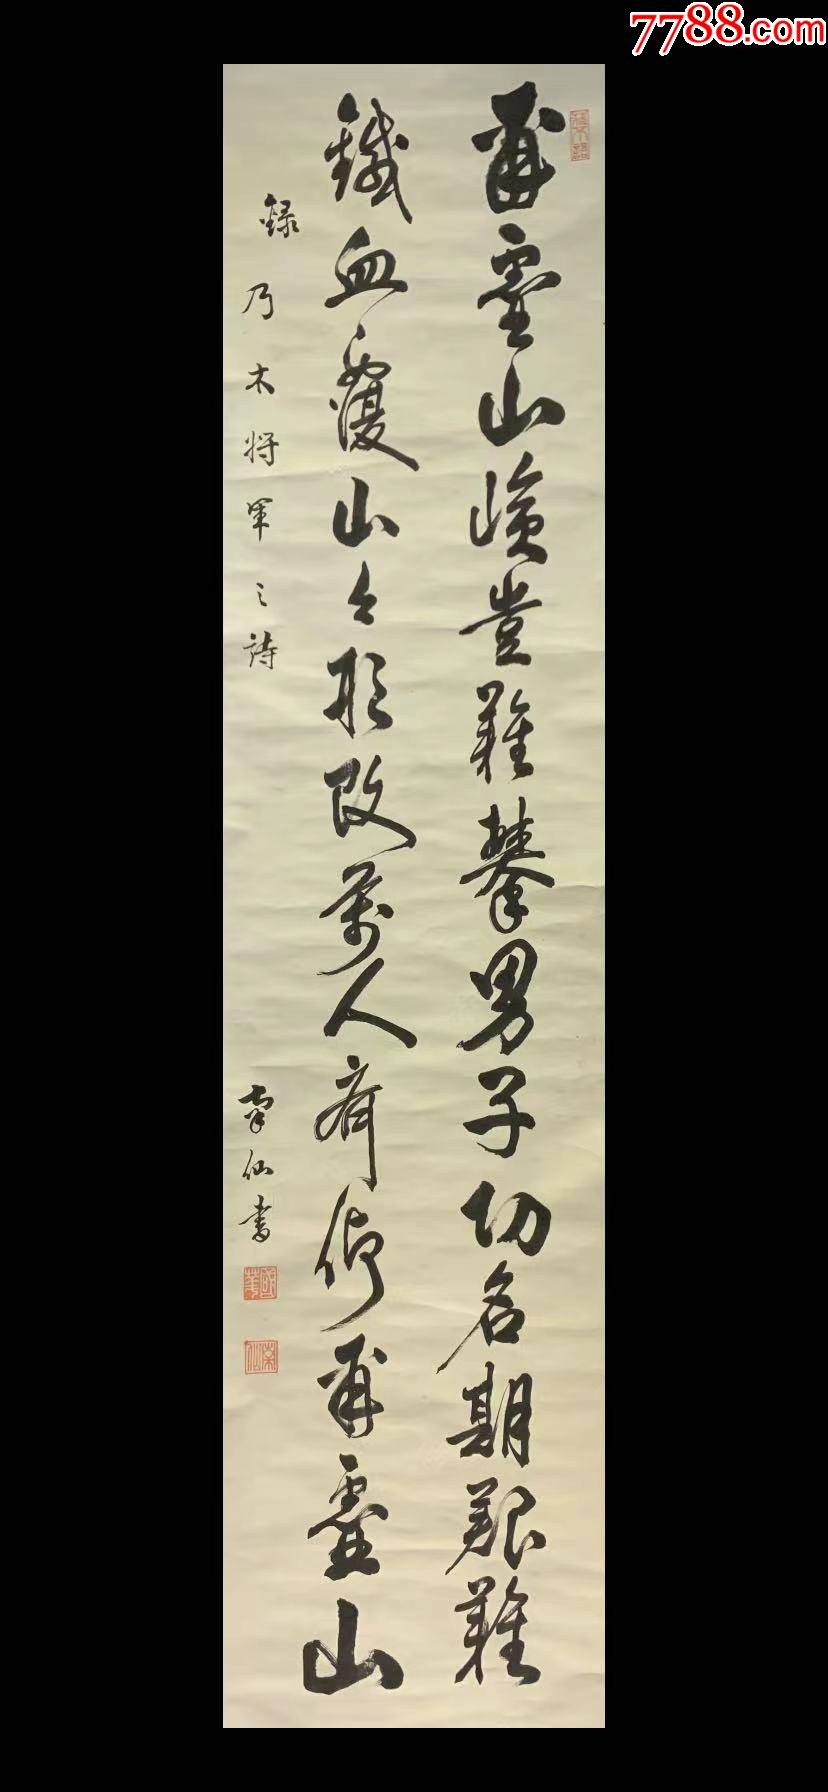 7788.com
爾靈山嶮豈難攀男子功名期艱難
鐵血覆山々形改萬人齊仰爾靈山
録乃木将軍之詩
仙書